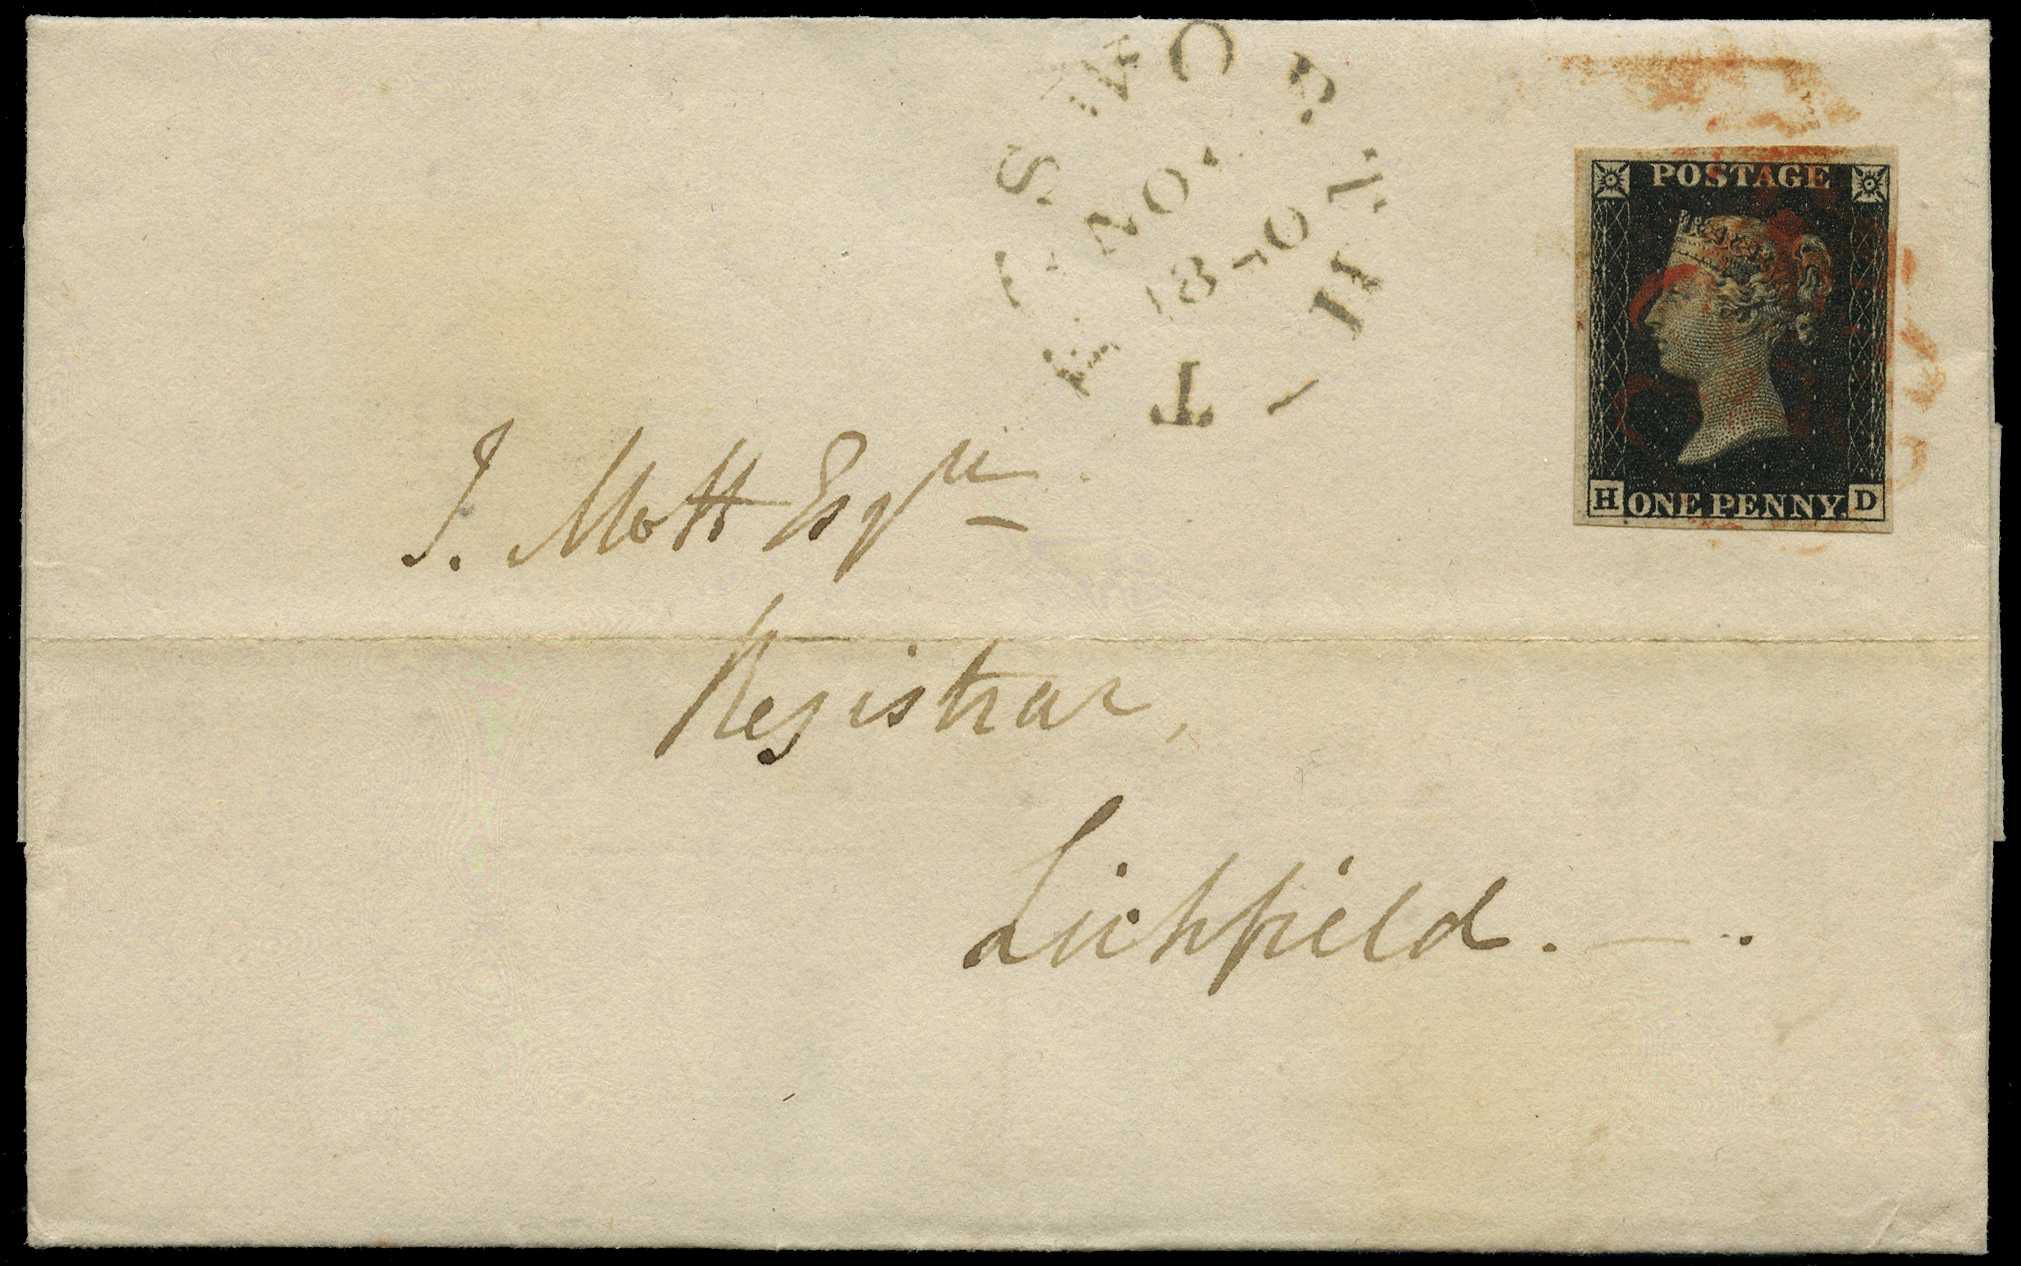 POSTAGE
H ONE PENNY. D
NO.
J. Mott Esqre
Registrar,
Lichfield.